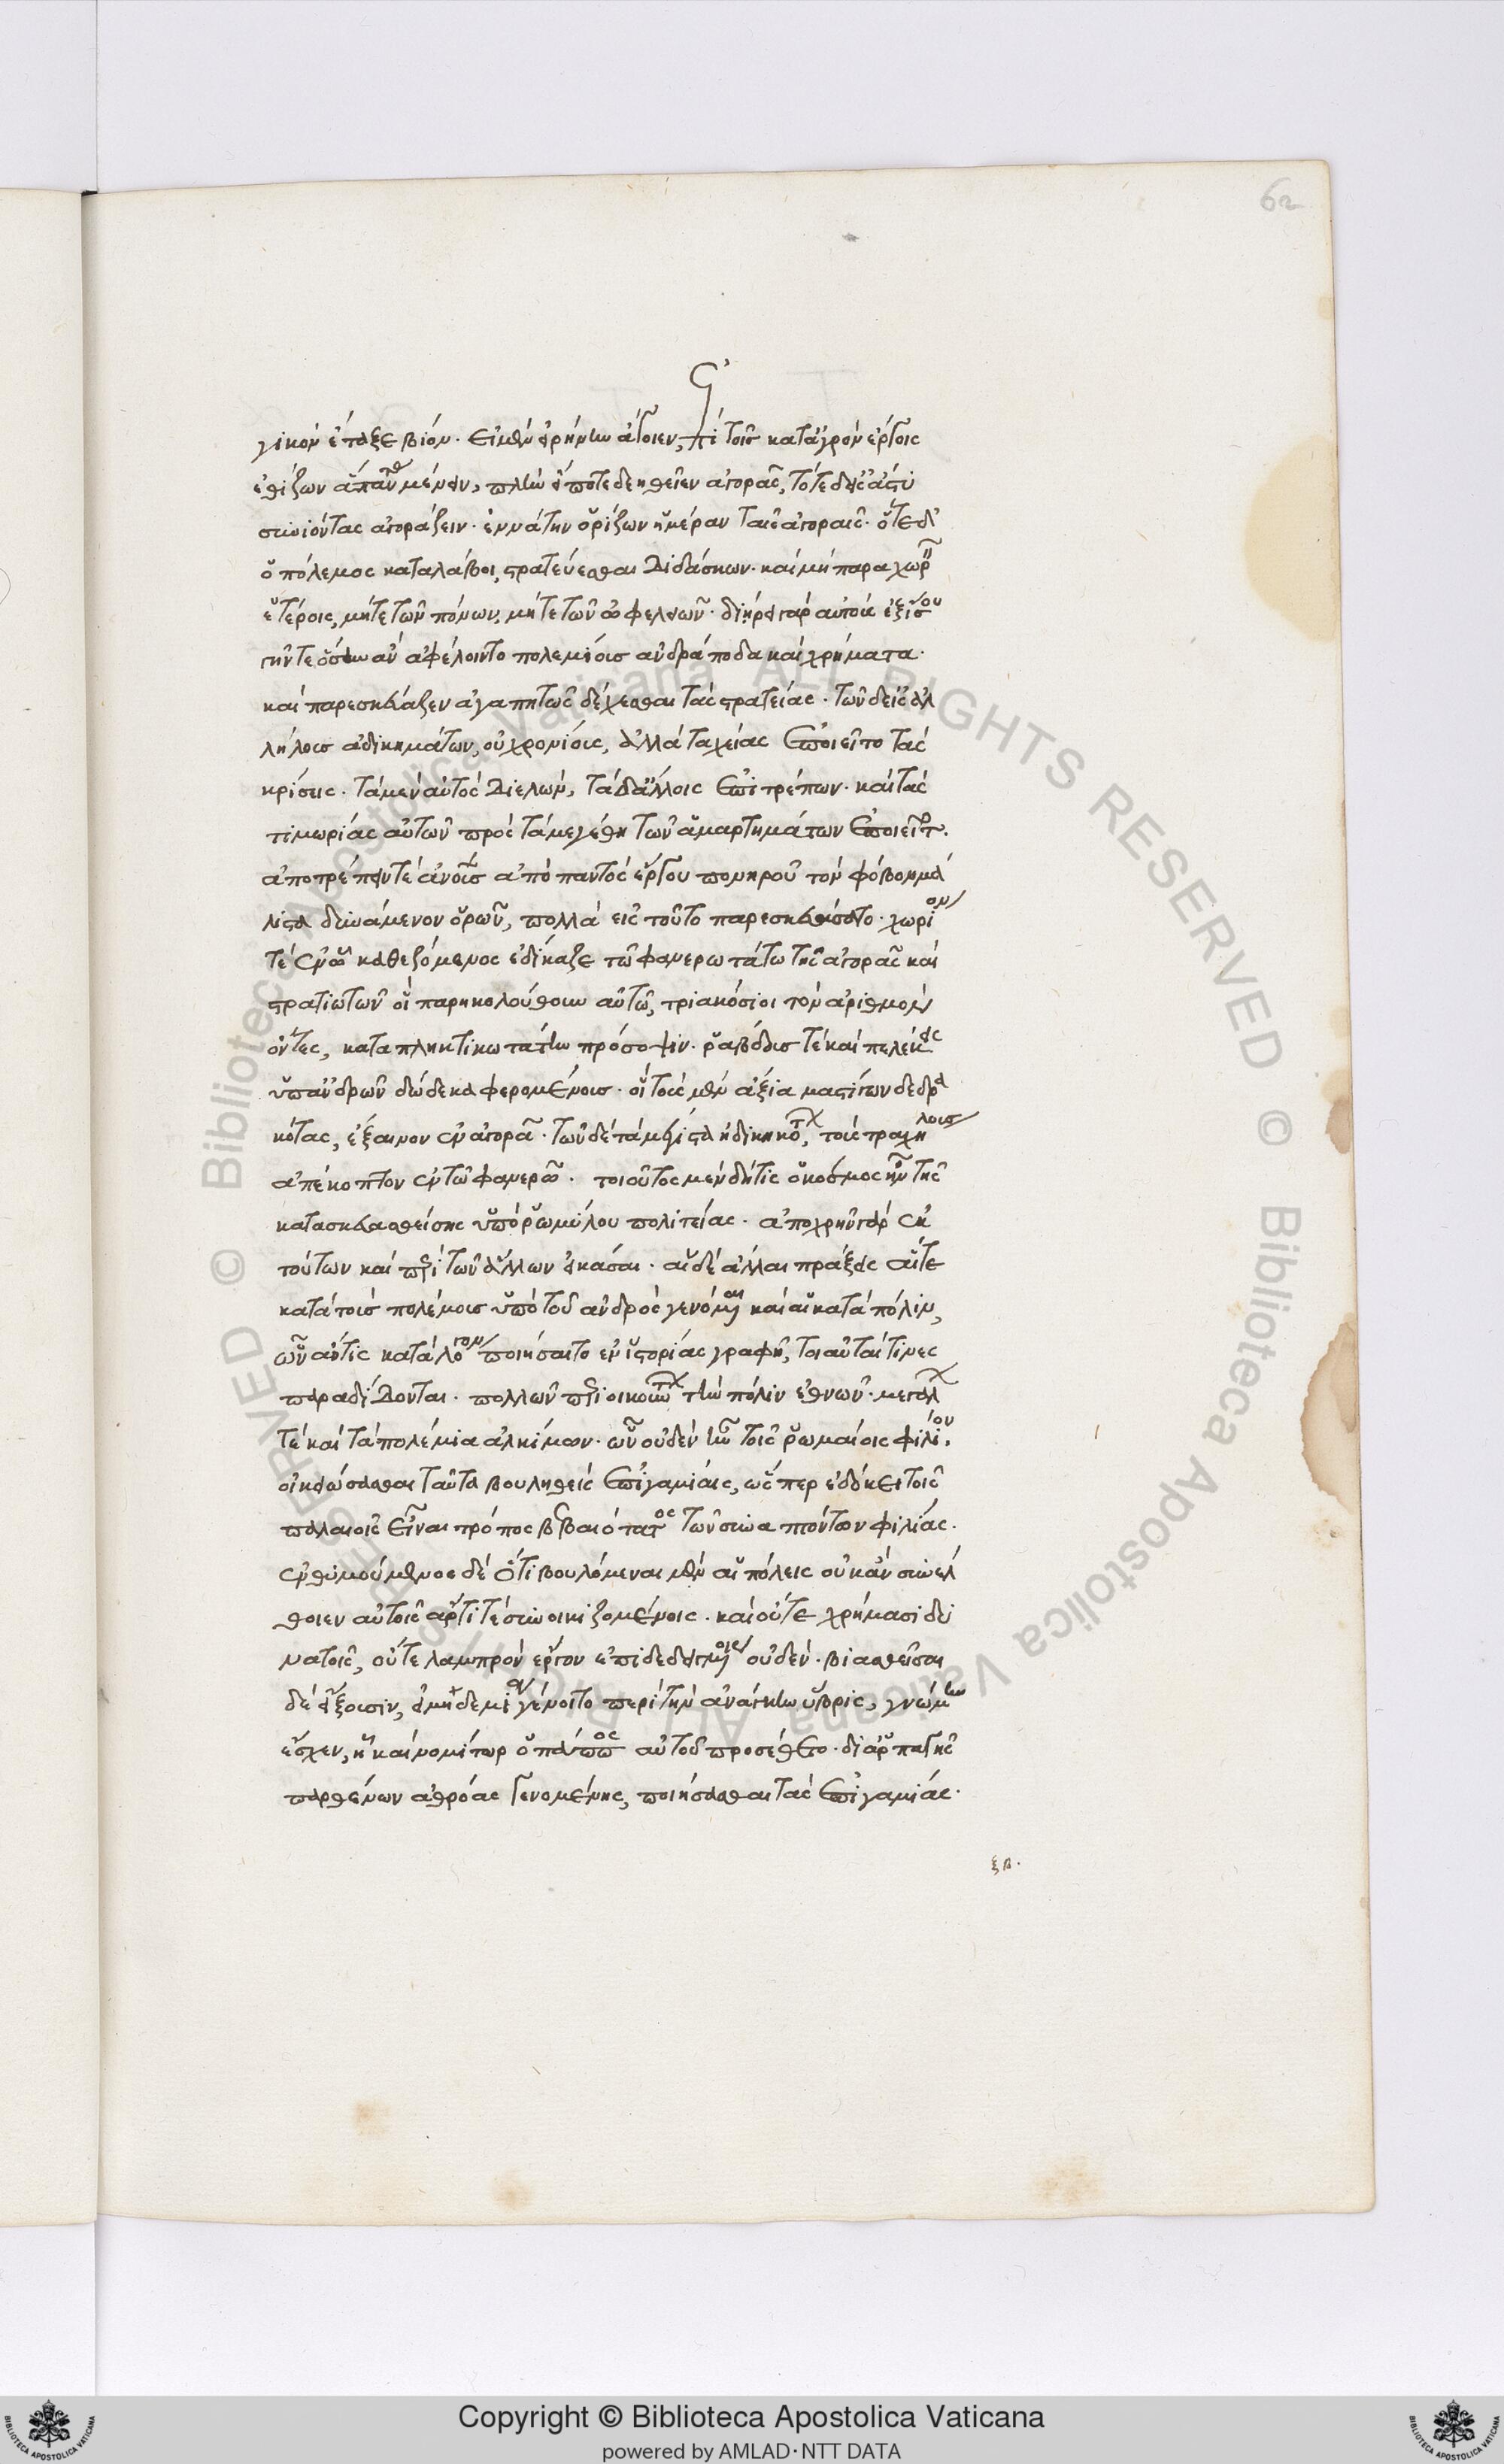 62
γικὸν ἔταξε βίον. εἰ μὲν εἰρήνην ἄγοιεν, ἐπὶ τοῖς κατ' ἀγρὸν ἔργοις
ἐθίζων ἅπαντας μένειν, πλὴν εἴποτε δεηθεῖεν ἀγορᾶς, τότε δ' εἰς ἄστυ
συνιόντας ἀγοράζειν. ἐννάτην ὁρίζων ἡμέραν ταῖς ἀγοραῖς. ὅτε δ'
ὁ πόλεμος καταλάβοι, στρατεύεσθαι διδάσκων. καὶ μὴ παραχωρεῖν
ἑτέροις, μήτε τῶν πόνων, μήτε τῶν ὠφελειῶν. διῄρει γὰρ αὐτοῖς ἐξίσου
γῆν τε ὅσην ἂν ἀφέλοιντο πολεμίους ἀνδράποδα καὶ χρήματα.
καὶ παρεσκεύαζεν ἀγαπητῶς δέχεσθαι τὰς στρατείας. τῶν δ' εἰς ἀλ
λήλους ἀδικημάτων, οὐ χρονίους, ἀλλὰ ταχείας ἐποιεῖτο τὰς
κρίσεις. τὰ μὲν αὐτὸς διελὼν, τὰ δ' ἄλλοις ἐπιτρέπων. καὶ τὰς
τιμωρίας αὐτῶν πρὸς τὰ μεγέθη τῶν ἁμαρτημάτων ἐποιεῖτο.
ἀποτρέπειν τε ἀνθρώπους ἀπὸ παντὸς ἔργου πονηροῦ τὸν φόβον μά
λιστα δυνάμενον ὁρῶν, πολλὰ εἰς τοῦτο παρεσκευάσατο. χωρίον
τε ἐν ᾧ καθεζόμενος ἐδίκαζε τῷ φανερωτάτῳ τῆς ἀγορᾶς καὶ
στρατιωτῶν οἳ παρηκολούθουν αὐτῷ, τριακόσιοι τὸν ἀριθμὸν
ὄντες, καταπληκτικωτάτην πρόσοψιν. ῥάβδους τε καὶ πελέκεις
ὑπ' ἀνδρῶν δώδεκα φερομένους. οἳ τοὺς μὲν ἄξια μαστίγων δεδρα
κότας, ἔξαινον ἐν ἀγορᾷ. τῶν δὲ τὰ μέγιστα ἠδικηκότων, τοὺς τραχήλους
ἀπέκοπτον ἐν τῷ φανερῷ. τοιοῦτος μὲν δή τις ὁ κόσμος ἦν τῆς
κατασκευασθείσης ὑπὸ ῥωμύλου πολιτείας. ἀποχρὴν γὰρ ἐκ
τούτων καὶ περὶ τῶν ἄλλων εἰκάσαι. αἱ δὲ ἄλλαι πράξεις αἵ τε
κατὰ τοὺς πολέμους ὑπὸ τοῦ ἀνδρὸς γενόμεναι καὶ αἱ κατὰ πόλιν,
ὧν ἄν τις κατάλογον ποιήσαιτο ἐν ἱστορίας γραφῇ, τοιαῦταί τινες
παραδίδονται. πολλῶν περιοικούντων τὴν πόλιν ἐθνῶν. μεγάλων
τε καὶ τὰ πολέμια ἀλκίμων. ὧν οὐδὲν ἦν τοῖς ῥωμαίοις φίλιον.
οἰκειώσασθαι ταῦτα βουληθεὶς ἐπιγαμίαις, ὥσπερ ἐδόκει τοῖς
παλαιοῖς εἶναι τρόπος βεβαιότατος τῶν συναπτόντων φιλίας.
ἐνθυμούμενος δὲ ὅτι βουλόμεναι μὲν αἱ πόλεις οὐκ ἂν συνέλ
θοιεν αὐτοῖς ἄρτι τε συνοικιζομένοις. καὶ οὔτε χρήμασι δυ
νατοῖς, οὔτε λαμπρὸν ἔργον ἐπιδεδειγμένοις οὐδέν. βιασθεῖσαι
δὲ εἴξουσιν, εἰ μηδεμία γένοιτο περὶ τὴν ἀνάγκην ὕβρις, γνώμην
ἔσχεν, ᾗ καὶ νομίτωρ ὁ πάππος αὐτοῦ προσέθετο. δι' ἁρπαγῆς
παρθένων ἀθρόας γενομένης, ποιήσασθαι τὰς ἐπιγαμίας.
ξβ.
Copyright © Biblioteca Apostolica Vaticana
powered by AMLAD·NTT DATA
© Biblioteca Apostolica Vaticana ALL RIGHTS RESERVED
© Biblioteca Apostolica Vaticana ALL RIGHTS RESERVED